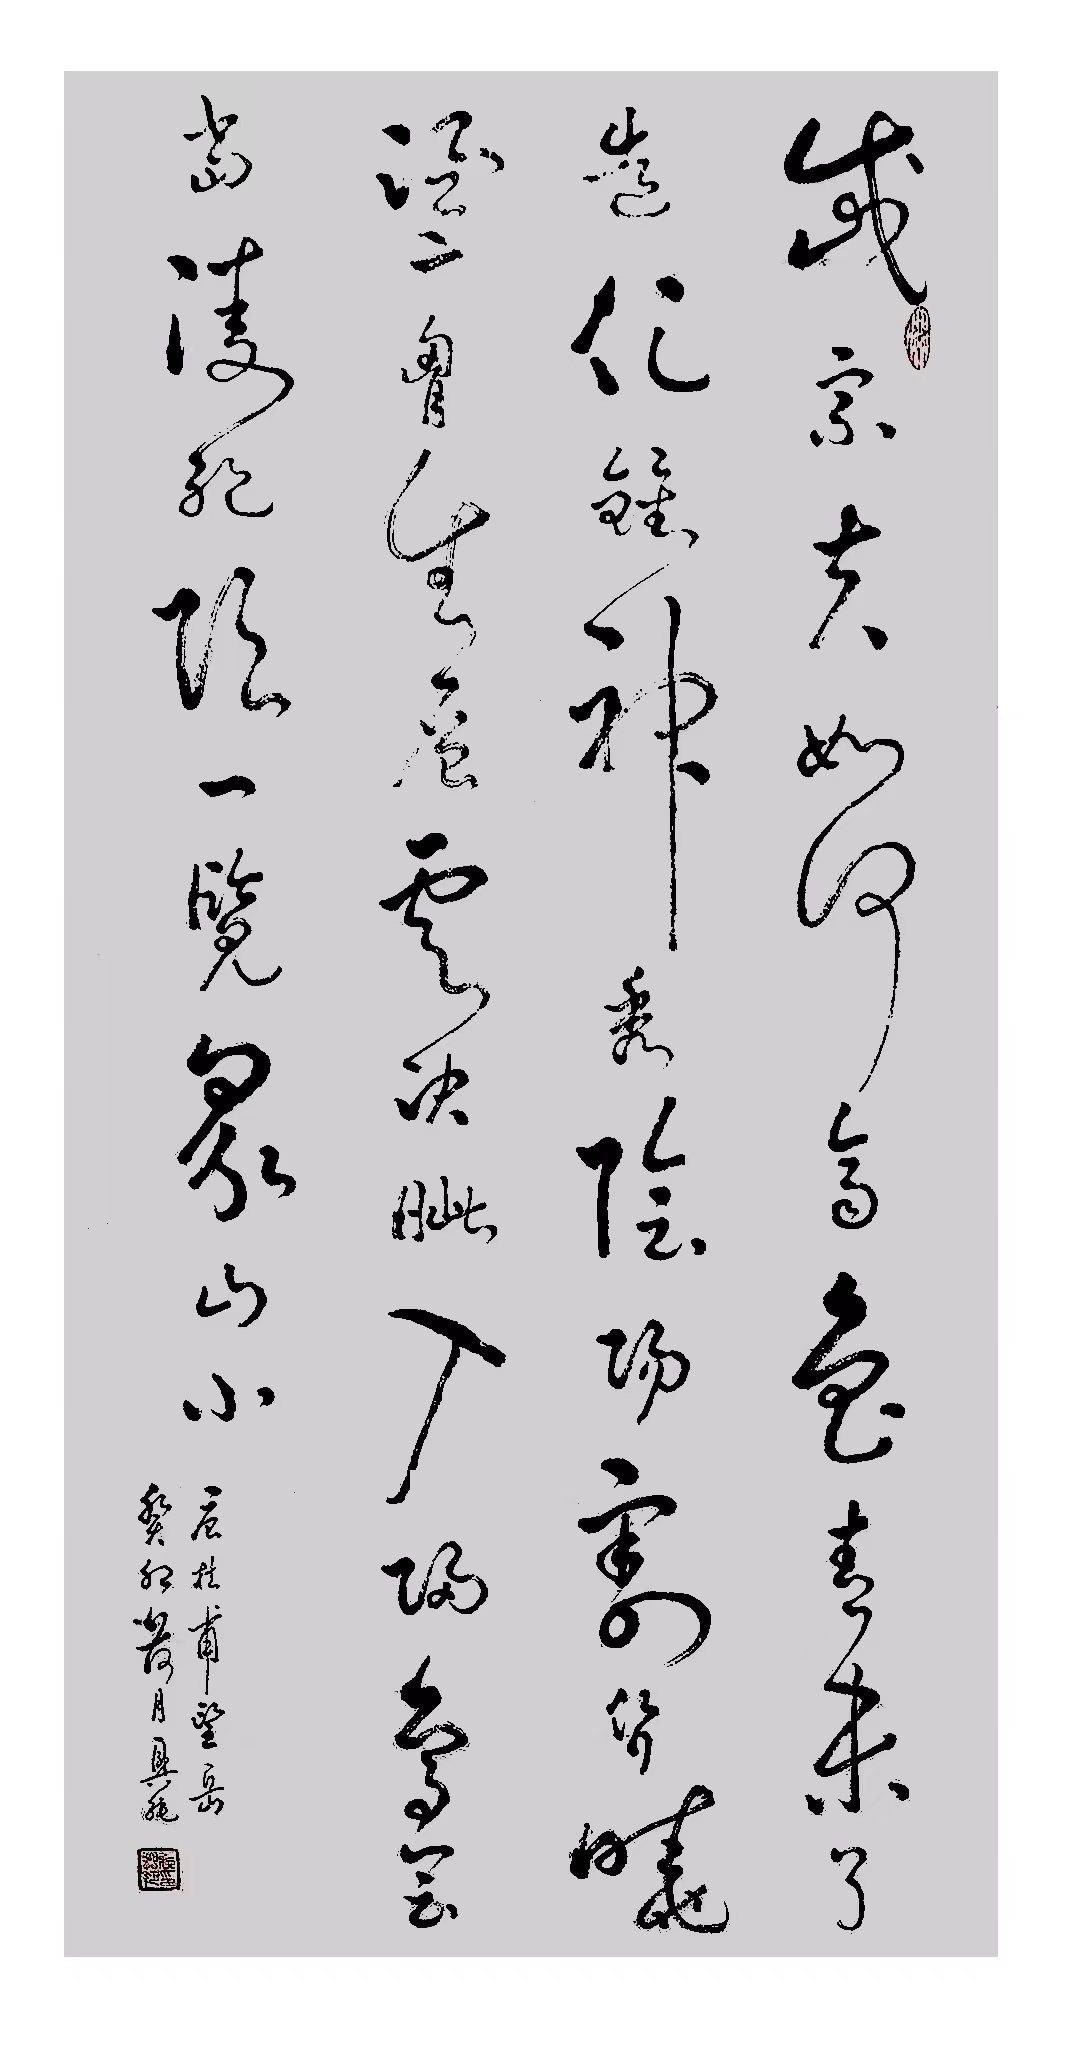 岱宗夫如何齊魯青未了
造化鍾神秀陰陽割昏曉
盪胷生層雲決眦入歸鳥會
當凌絕頂一覽衆山小
唐杜甫望岳
癸卯月